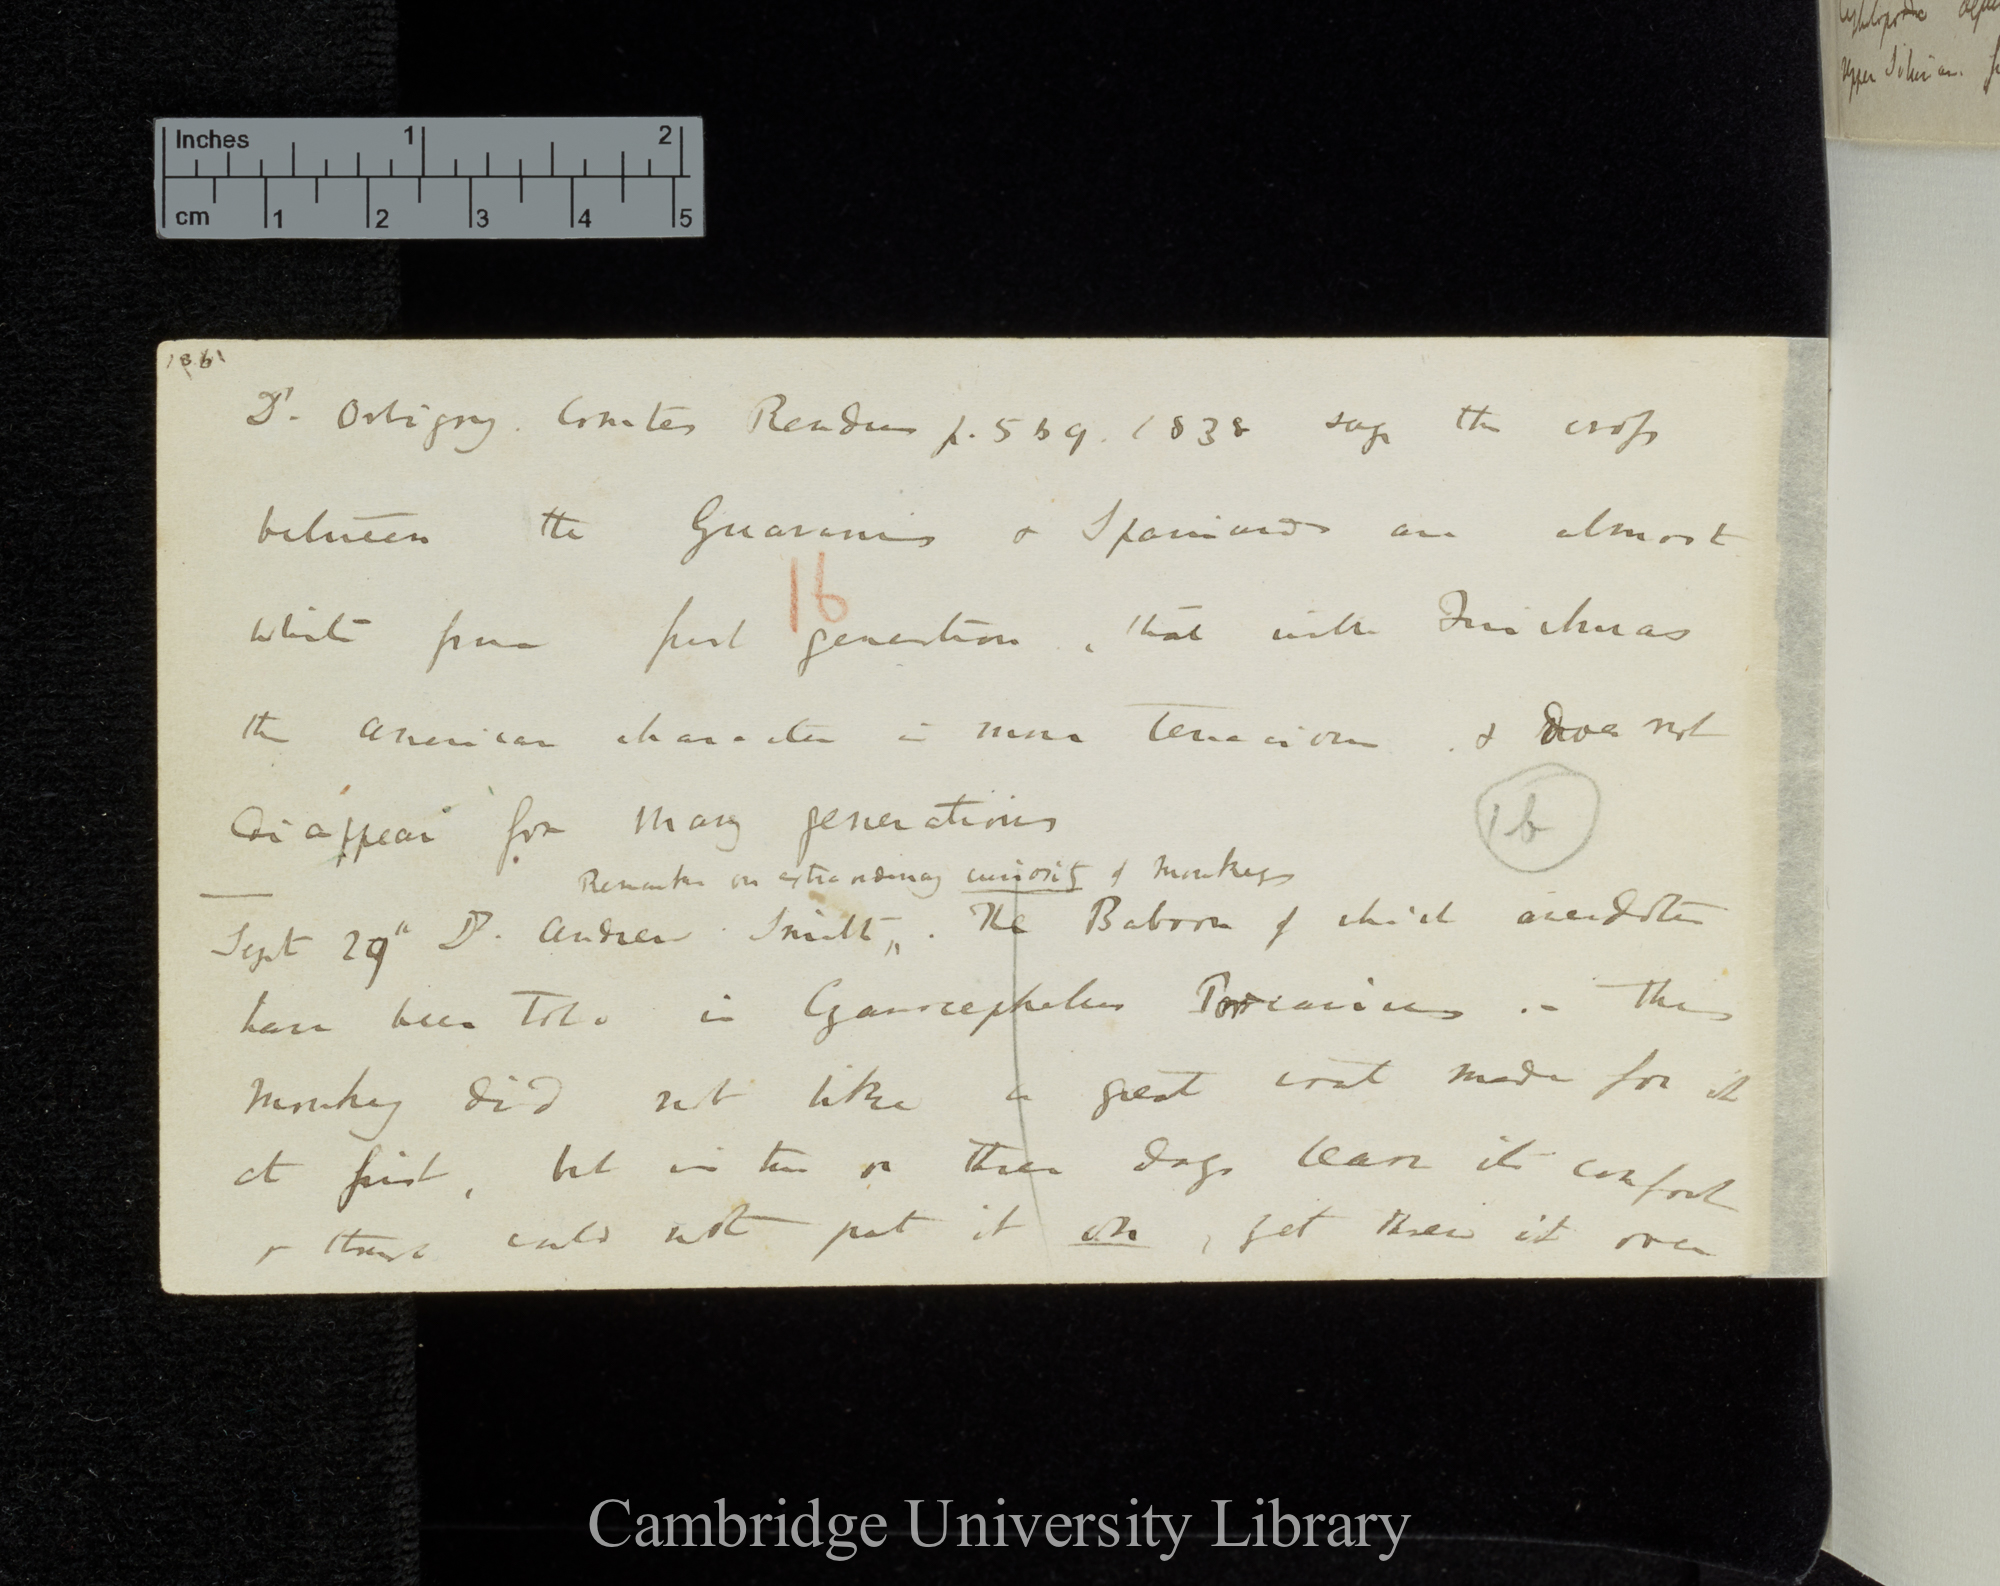 Inches 1 2
cm 1 2 3 4 5
Upper Silurian.
Dr. Orbigny. Comtes Rendus p. 569. 1838 says the cross
between the Guaranis & Spaniards are almost
white from first generation, that with Quichuas
16
the American character is more tenacious. & does not
disappear for many generations
16
Remarks on extraordinary curiosity of Monkeys
Sept 29th Dr. Andrew Smith,, . The Baboon of which anecdotes
have been told is Cynocephalus Porcarius .– This
monkey did not like a great coat made for it
at first, but in two or three days learn its comfort
& though could not put it on, yet threw it over
Cambridge University Library